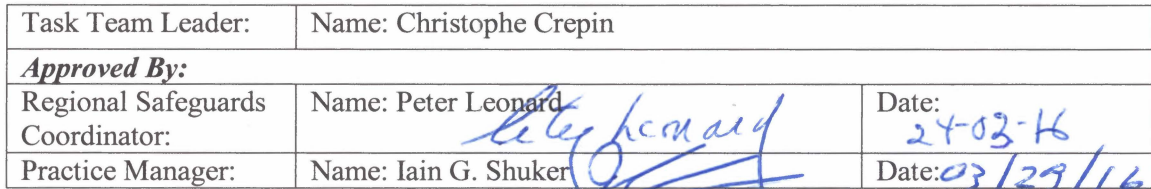 Task Team Leader: Name: Christophe Crepin
Approved By:
Regional Safeguards Coordinator: Name: Peter Leonard Peter Leonard Date: 24-03-16
Practice Manager: Name: Iain G. Shuker Date: 03/29/16